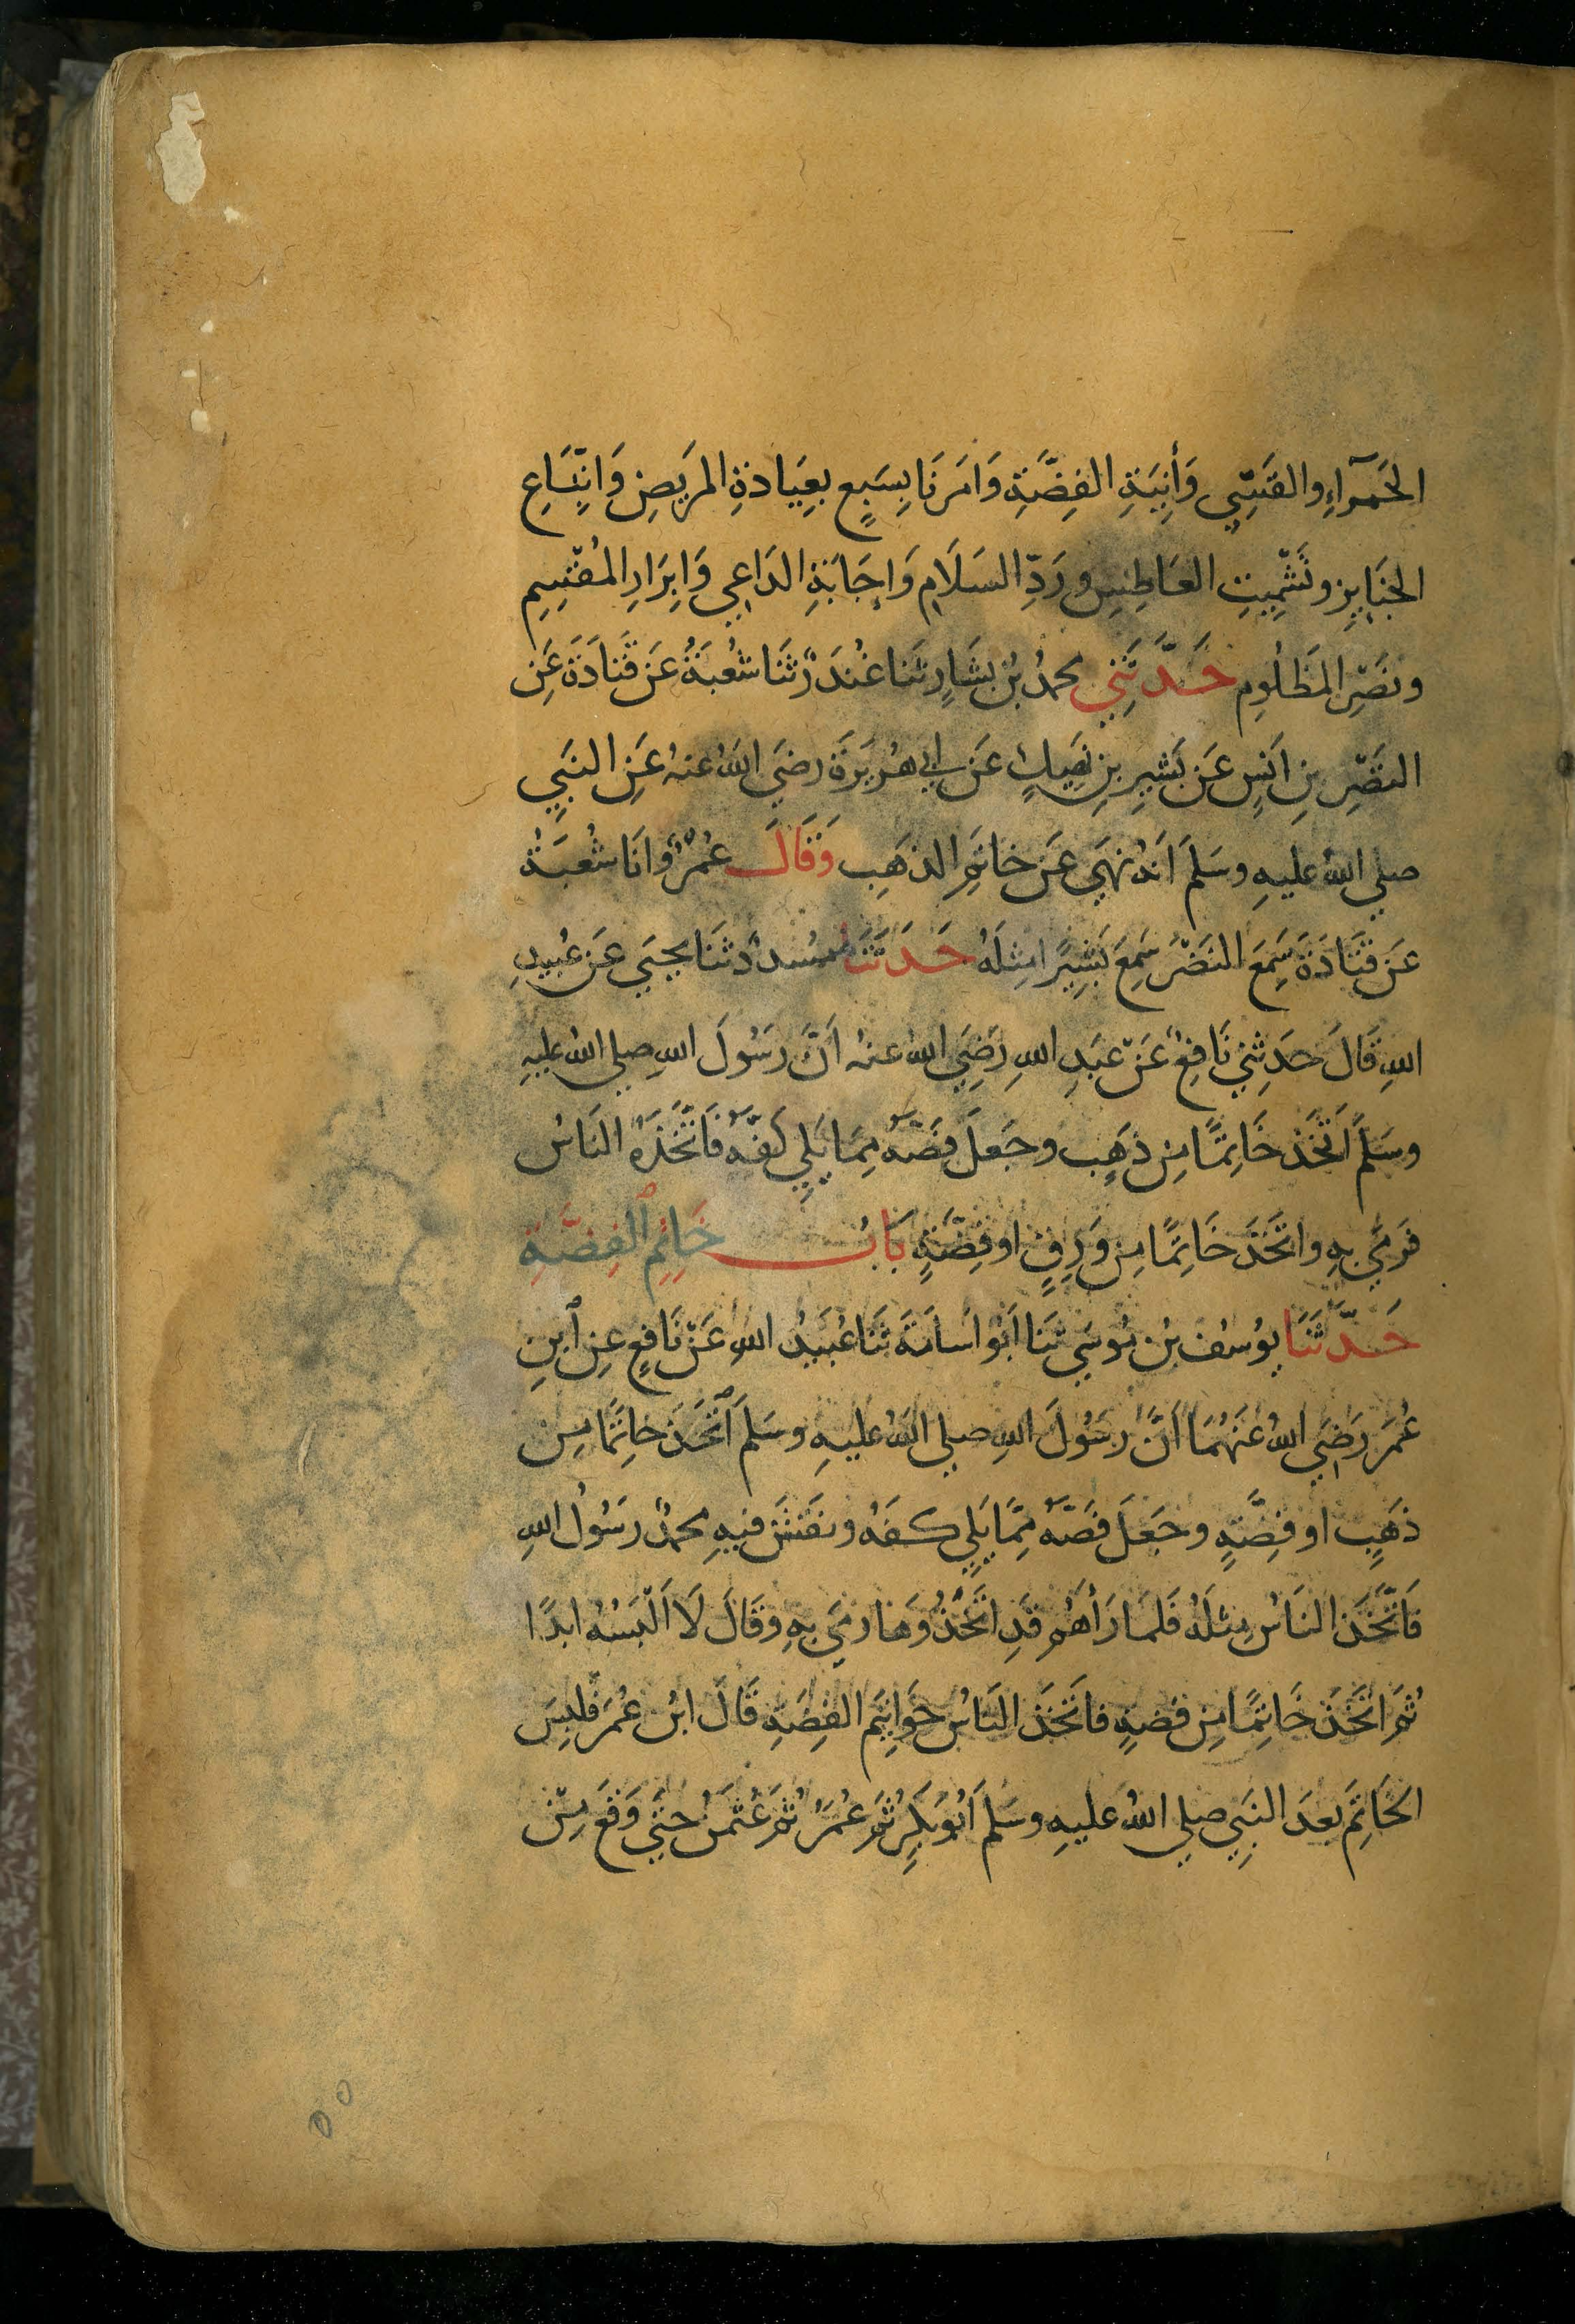 الحَمرَآءِ والقَسِّيِ وَأنِيَةِ الفِضَّةِ وَامَرَنَا بِسَبعٍ بعِيَادةِ المَريضِ وَاتِّبَاعِ
الجنَايِزِ وتَشْمِيتِ العَاطِسِ ورَدِّ السَلَامِ وَاِجَابَةِ الدَاعِي وَاِبرَارِ المُقْسِمِ
ونَصْرِ المَظلُومِ حَدَّثَنِي محمدُ بْنُ بشَارٍ ثنَا غُندَرٌ ثنَا شُعْبَةُ عَن قَتَادَةَ عَنِ
النَضْرِ بنِ انَسٍ عَن بَشيرِ بنِ نَهِيكٍ عَن ابي هُريَرةَ رضيَ اللهُ عنهُ عَنِ النبَيِ
صلي اللهُ عليهِ وسَلمَ اَنهُ نهَي عَن خاتمِ الذهَبِ وَقَالَ عَمْرٌو انَا شُعْبَةُ
عَن قتَادَةَ سَمِعَ النَضْرَ سَمِعَ بَشِيرًا مِثلَهُ حَدَثَنَا مُسَددٌ ثنَا يحيَي عَن عُبيدِ
اللهِ قَالَ حدَثِنِي نَافِعٌ عَنْ عبَدِ اللهِ رَضِيَ اللهُ عنهُ اَنَّ رسَولَ اللهِ صلي اللهُ عليهِ
وسَلمَ اتَّخَذَ خَاتِمًا مِن ذهَبٍ وجَعلَ فَصَّهُ مِمَا يَلِي كَفَّهُ فَاتَّخَذَهُ النَاسُ
فَرمَي بهِ واتخَذَ خَاتِمًا مِن وَرِقٍ او فِضَّةٍ بَابُ خَاتِمِ الفِضَّةِ
حَدَّثَنَا يوُسُفُ بْنُ مُوسَي ثنَا ابَوُ اسَامَةَ ثَنَا عُبَيدُ اللهِ عَنْ نَافعٍ عنِ ابنِ
عُمَرَ رَضِيَ اللهُ عَنهُمَا انَّ رسُولَ اللهِ صلي اللهُ عليهِ وسَلمَ اتَّخَذَ خاتِمًا مِن
ذهَبٍ او فِضَّةٍ وجَعَلَ فَصَّهُ مِمَّا يَلِي كفَهُ ونقَشَ فيهِ محمدٌ رسُولُ اللهِ
فَاتَّخَذَ النَاسُ مِثلَهُ فَلمَا رَأهُم قَدِ اتَّخَذُوهَا رمَي بهِ وقَالَ لَا اَلْبَسُهُ ابدًا
ثمَ اتَّخَذَ خَاتِمًا مِن فضةٍ فاتَخَذَ النَاسُ خَوَاتِيَم الفِضَةِ قَالَ ابْنُ عُمَرَ فَلَبِسَ
الخَاتِمَ بعدَ النبَيِ صلي اللهُ عليهِ وسَلمَ اَبُو بَكرٍ ثمَ عُمَرُ ثمَ عُثمَنُ حتَي وَقعَ مِنْ